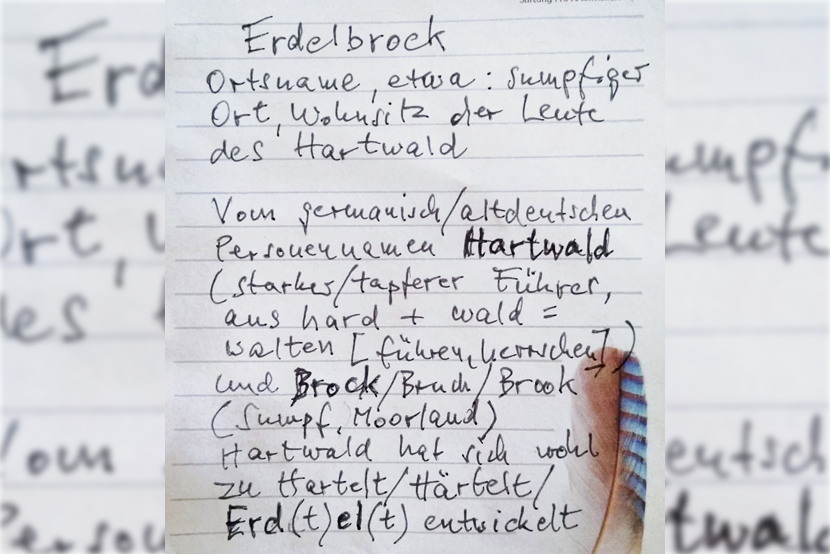 Erdelbrock
Ortsname, etwa: sumpfiger
Ort, Wohnsitz der Leute
des Hartwald
Vom germanisch/altdeutschen
Personennamen Hartwald
(starker/tapferer Führer,
aus hard + wald =
walten [führen, herrschen])
und Brock/Bruch/Brook
(Sumpf, Moorland)
Hartwald hat sich wohl
zu Hartelt/Härtelt/
Erd(t)el(t) entwickelt